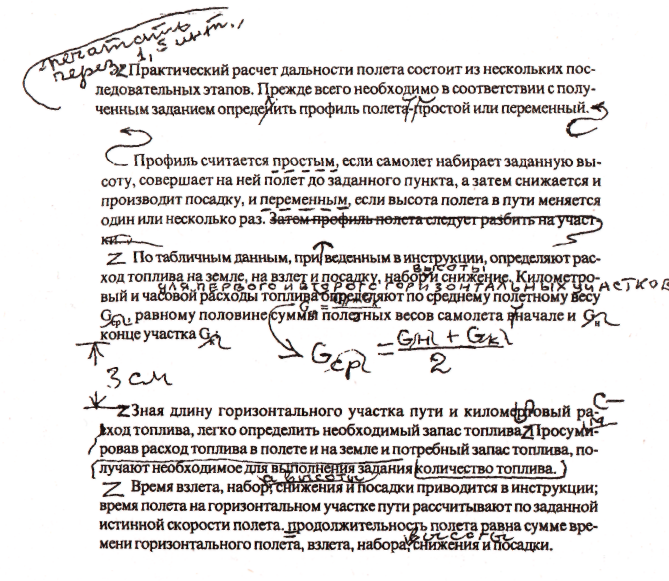 печатать
через 1,5 инт.
Практический расчет дальности полета состоит из нескольких пос-
ледовательных этапов. Прежде всего необходимо в соответствии с полу-
ченным заданием определить профиль полета-простой или переменный.
Профиль считается простым, если самолет набирает заданную вы-
соту, совершает на ней полет до заданного пункта, а затем снижается и
производит посадку, и переменным, если высота полета в пути меняется
один или несколько раз. Затем профиль полета следует разбить на участ-
ки.
По табличным данным, при веденным в инструкции, определяют рас-
ход топлива на земле, на взлет и посадку, набор и снижение. Километро-
высоты
для первого и второго горизонтальных участков
вый и часовой расходы топлива определяют по среднему полетному весу
Gср, равному половине суммы полетных весов самолета вначале и Gн
конце участка Gк:
Gср = Gн + Gк / 2
3 см
Зная длину горизонтального участка пути и километровый ра-
с
ход топлива, легко определить необходимый запас топлива. Просуми-
м
ровав расход топлива в полете и на земле и потребный запас топлива, по-
лучают необходимое для выполнения задания количество топлива.
высоты
Время взлета, набор, снижения и посадки приводится в инструкции;
время полета на горизонтальном участке пути рассчитывают по заданной
истинной скорости полета. продолжительность полета равна сумме вре-
высоты
мени горизонтального полета, взлета, набора, снижения и посадки.